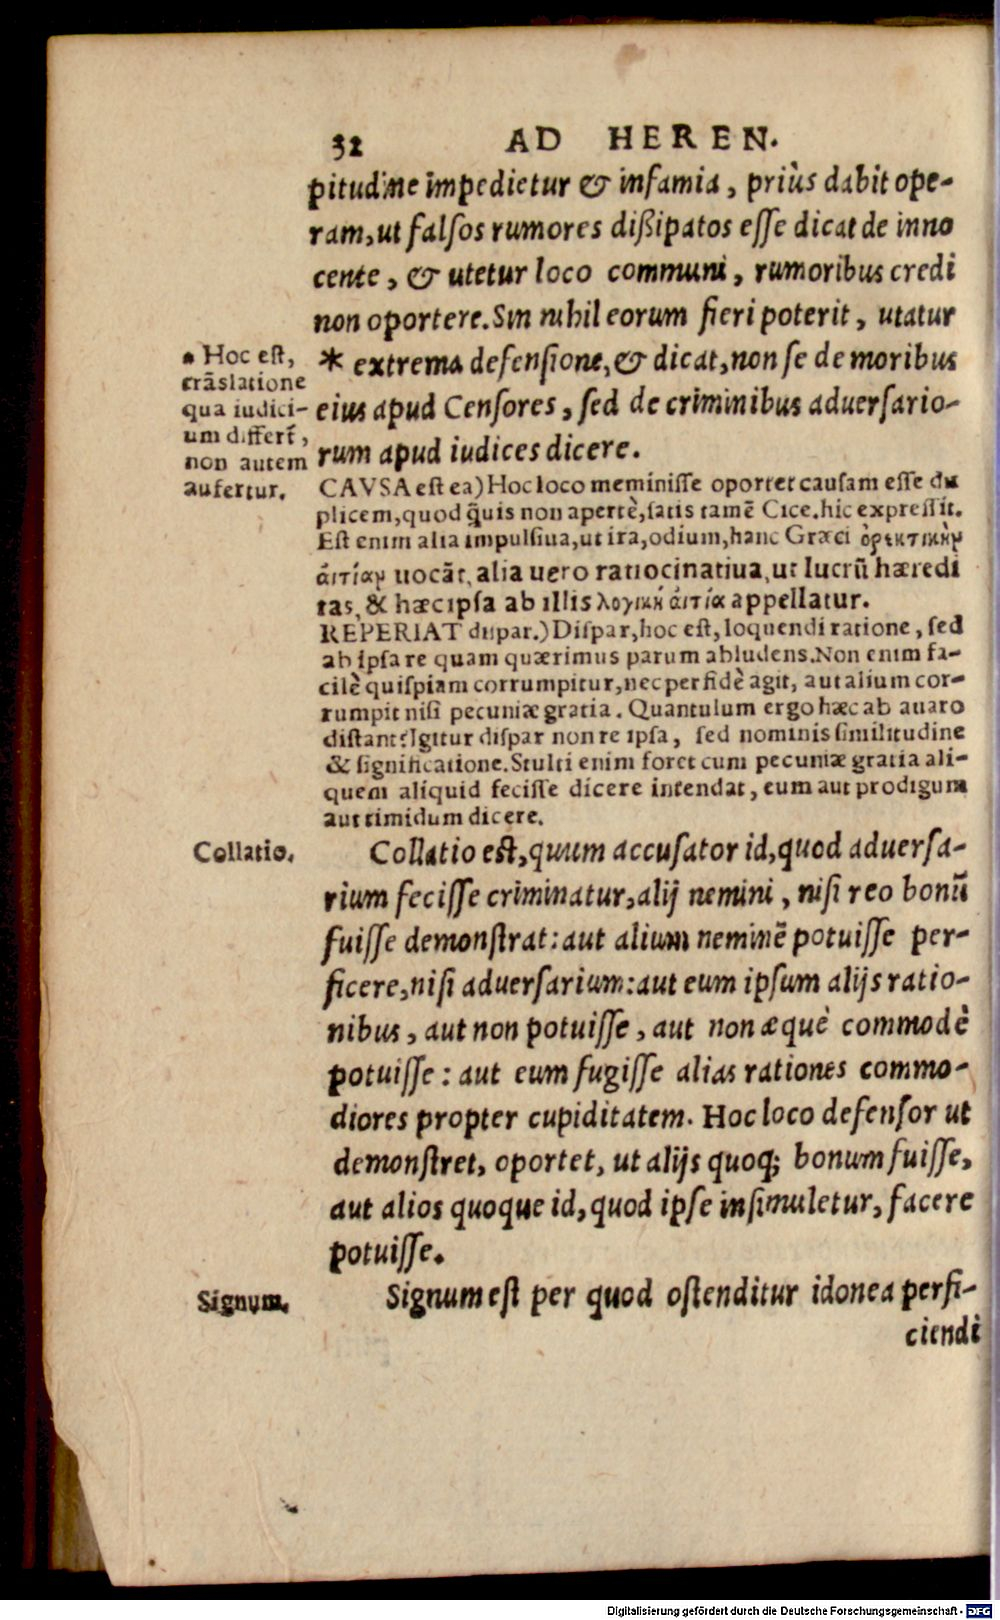 32 AD HEREN.
pitudine impedietur & infamia, priùs dabit ope-
ram, ut falsos rumores dißipatos esse dicat de inno
cente, & utetur loco communi, rumoribus credi
non oportere. Sin nihil eorum fieri poterit, utatur
* extrema defensione, & dicat, non se de moribus
eius apud Censores, sed de criminibus aduersario-
rum apud iudices dicere.
* Hoc est,
trãslatione
qua iudici-
um differt̃,
non autem
aufertur.
CAVSA est ea) Hoc loco meminisse oportet causam esse du
plicem, quod q̃uis non apertè, satis tamẽ Cice. hic expressit.
Est enim alia impulsiua, ut ira, odium, hanc Græci ὀρεκτικὴν
ἀιτίαν uocãt, alia uero ratiocinatiua, ut lucrũ hæredi
tas, & hæc ipsa ab illis λογικὴ ἀιτία appellatur.
REPERIAT dispar.) Dispar, hoc est, loquendi ratione, sed
ab ipsa re quam quærimus parum abludens. Non enim fa-
cilè quispiam corrumpitur, nec perfidè agit, aut alium cor-
rumpit nisi pecuniæ gratia. Quantulum ergo hæc ab auaro
distant? Igitur dispar non re ipsa, sed nominis similitudine
& significatione. Stulti enim foret cum pecuniæ gratia ali-
quem aliquid fecisse dicere intendat, eum aut prodigum
aut timidum dicere.
Collatio.
Collatio est, quum accusator id, quod aduersa-
rium fecisse criminatur, alij nemini, nisi reo bonũ
fuisse demonstrat: aut alium neminẽ potuisse per-
ficere, nisi aduersarium: aut eum ipsum alijs ratio-
nibus, aut non potuisse, aut non æquè commodè
potuisse: aut eum fugisse alias rationes commo-
diores propter cupiditatem. Hoc loco defensor ut
demonstret, oportet, ut alijs quoq; bonum fuisse,
aut alios quoque id, quod ipse insimuletur, facere
potuisse.
Signum.
Signum est per quod ostenditur idonea perfi-
ciendi
Digitalisierung gefördert durch die Deutsche Forschungsgemeinschaft - DFG